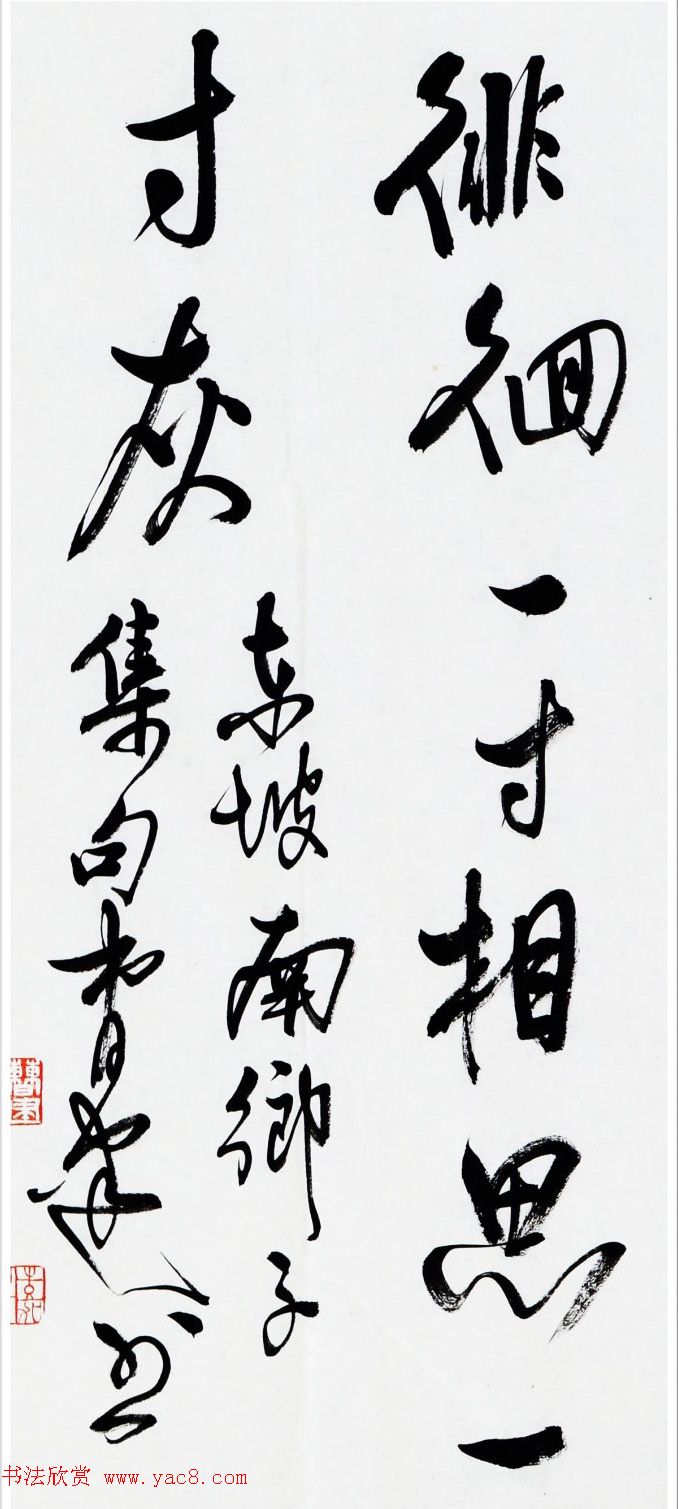 徘徊一寸相思一
寸灰
东坡南乡子
集句
书法欣赏 www.yac8.com